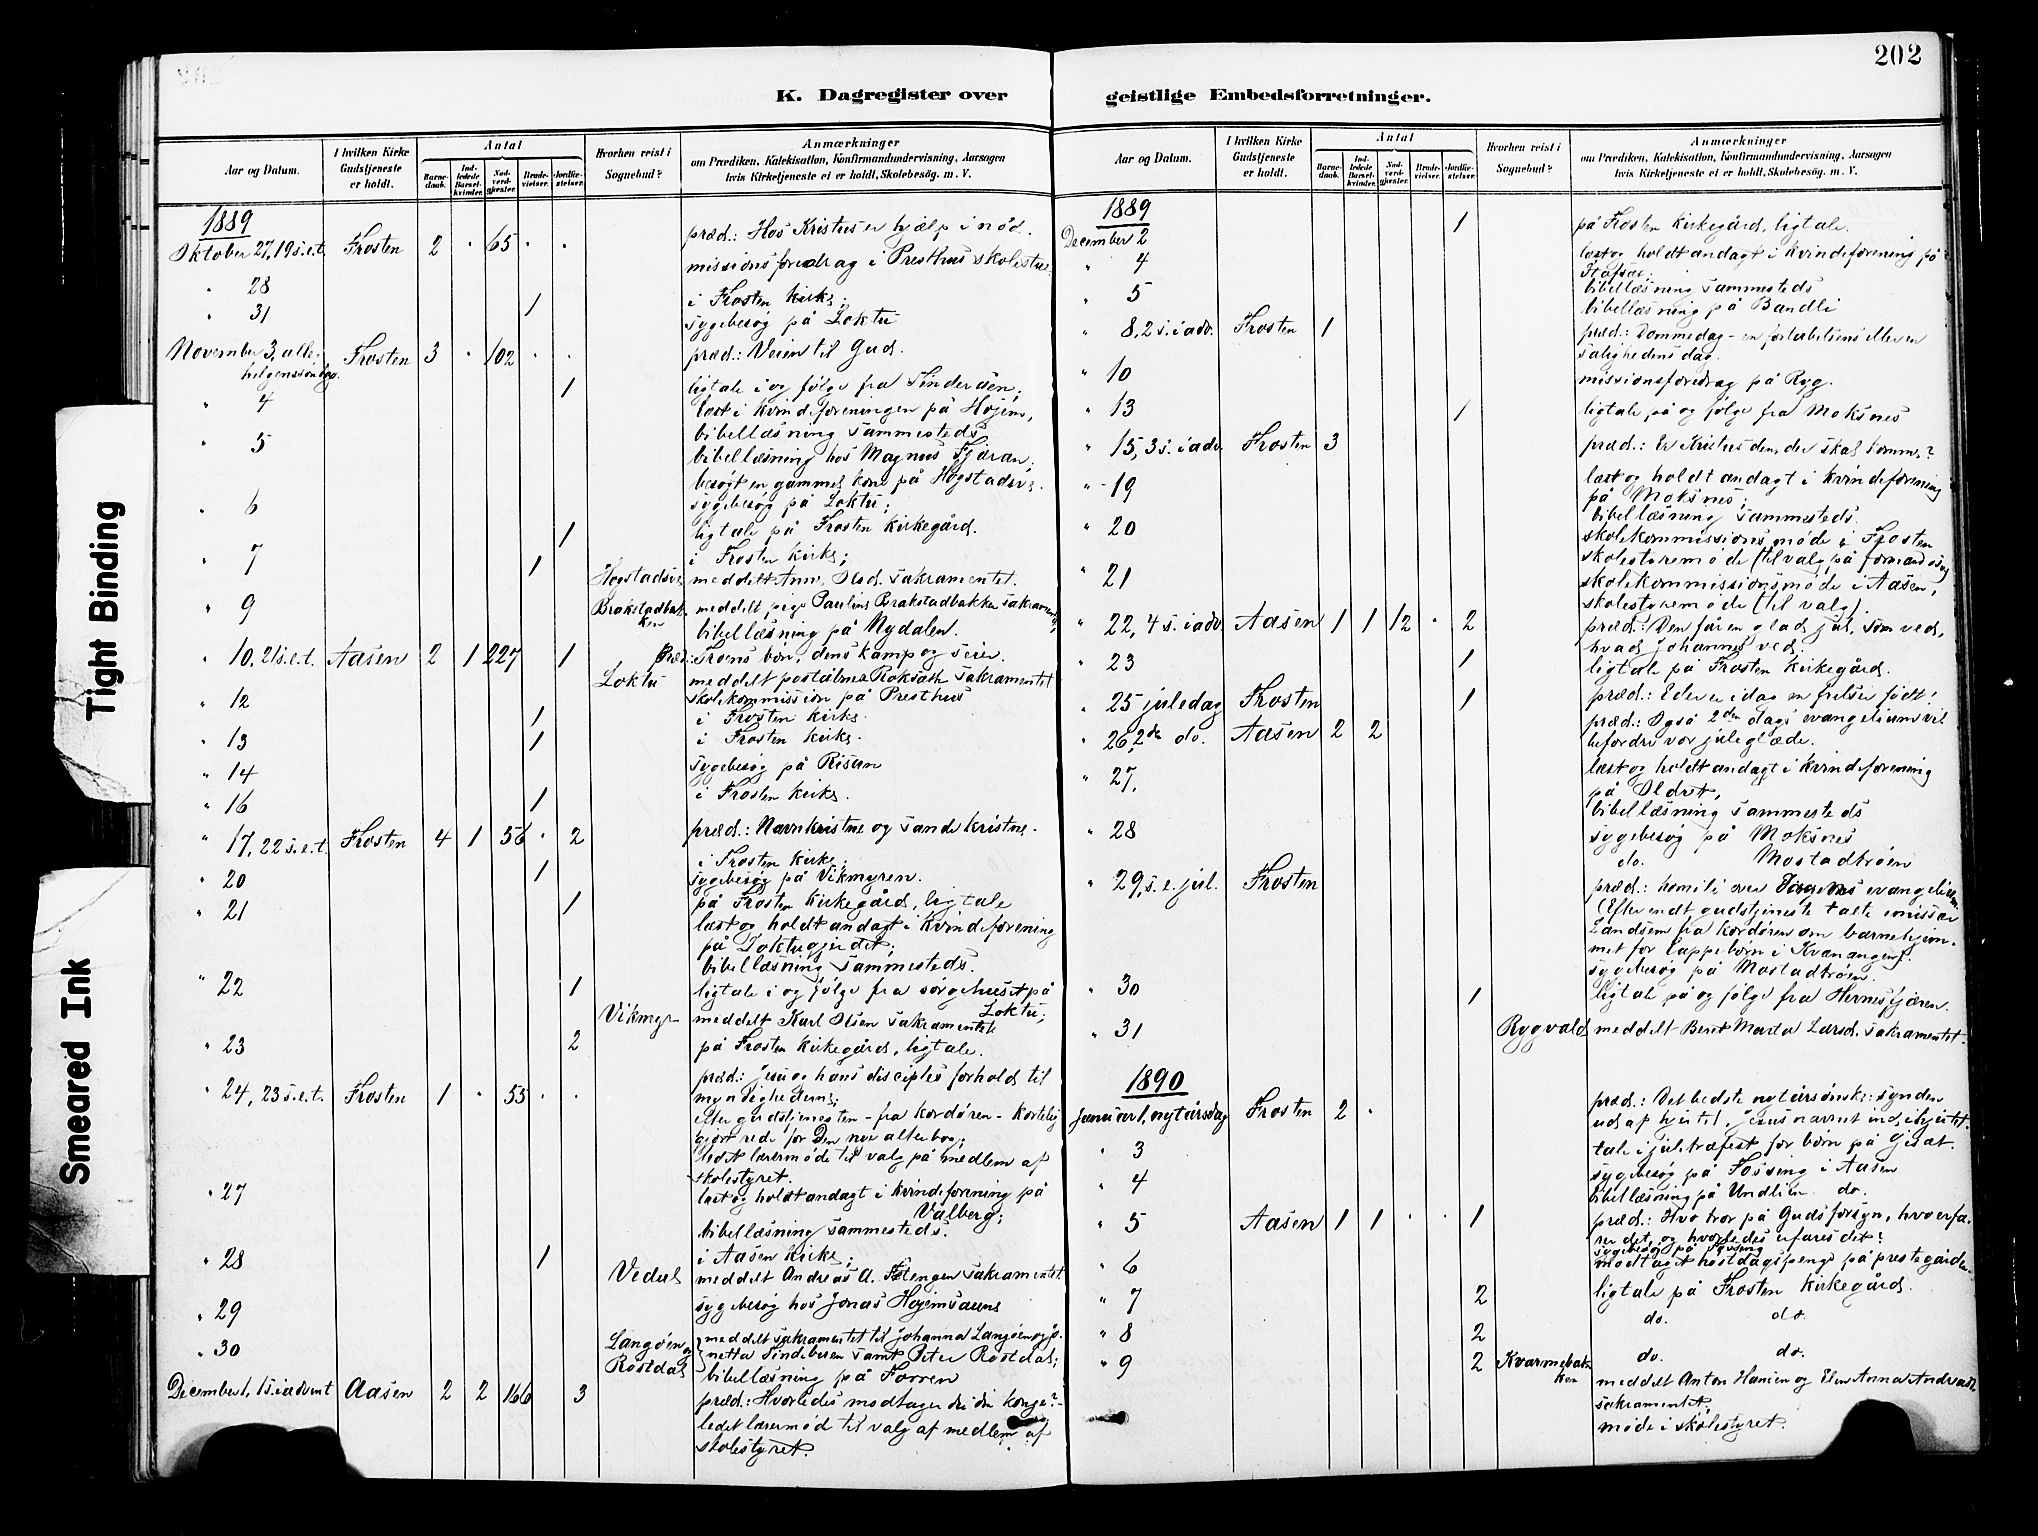 202
K. Dagregister over geistlige Embedsforretninger.
Aar og Datum.
I hvilken Kirke Gudstjeneste er holdt.
Antal
Barnedaab.
Indledede Barselkvinder.
Nadverdgjester.
Brudevielser.
Jordfæstelser.
Hvorhen reist i Sognebud?
Anmærkninger
om Prædiken, Katekisation, Konfirmandundervisning, Aarsagen
hvis Kirketjeneste ei er holdt, Skolebesøg. m. V.
1889
Oktober 27, 19 s.e.t. Frosten 2 " 65 " " præd.: Hos Kristus er hjælp i nød.
missionsforedrag i Presthus skolestue
" 28 1 i Frosten kirke;
" 31 sygebesøg på Loktu
November 3, alle- Frosten 3 " 102 " " præd.: Veien til Gud.
helgenssöndag.
" 4 1 ligtale i og følge fra Sinderåen;
læst i kvindeforeningen på Højem,
" 5 bibellæsning sammesteds
bibellæsning hos Magnus Fjæran;
besøgt en gammel kone på Hogstadsve.
" 6 sygebesøg på Loktu;
1 ligtale på Frosten kirkegård.
" 7 1 i Frosten kirke;
Hogstadsve meddelt Ann. Olsd. sakramentet.
" 9 Brakstadbakken meddelt pige Pauline Brakstadbakken sakramentet,
bibellæsning på Nydalen.
" 10, 21 s.e.t. Aasen 2 1 227 1 Præd.: Troens bön, dens kamp og seier.
Loktu meddelt poståbner Roksæth sakramentet
" 12 skolekommission på Presthus
1 i Frosten kirke.
" 13 1 i Frosten kirke.
" 14 sygebesøg på Risan
" 16 1 i Frosten kirke.
" 17, 22 s.e.t. Frosten 4 1 56 " 2 præd.: Navnkristne og sande kristne.
i Frosten kirke;
" 20 1 sygebesøg på Vikmyren.
" 21 1 på Frosten kirkegård, ligtale
læst og holdt andagt i kvindeforening
på Loktugjerdet;
bibellæsning sammesteds.
" 22 1 ligtale i og følge fra sørgehuset på
Loktu;
Vikmyr meddelt Karl Olsen sakramentet
" 23 2 på Frosten kirkegård, ligtale.
" 24, 23 s.e.t. Frosten 1 " 53 " " præd.: Jesu og hans disciples forhold til
myndighederne;
efter gudstjenesten - fra kordøren - kortelig
gjort rede for Den nye alterbog;
ledet lærermøde til valg på medlem af
skolestyret.
" 27 læst og holdt andagt i kvindeforening på
Valberg;
bibellæsning sammesteds.
" 28 1 i Aasen kirke;
Vedul meddelt Andreas A. sakramentet
" 29 sygebesøg hos Jonas Højemsaune
" 30 Langøen og Rostdal meddelt sakramentet til Johanna Langøen og
samt Peter Rostdal;
bibellæsning på Forren
December 1, 1 s. i advent Aasen 2 2 166 3 præd.: Hvorledes modtager du din konge?
ledet læremød til valg af medlem af
skolestyret.
Aar og Datum.
I hvilken Kirke Gudstjeneste er holdt.
Antal
Barnedaab.
Indledede Barselkvinder.
Nadverdgjester.
Brudevielser.
Jordfæstelser.
Hvorhen reist i Sognebud?
Anmærkninger
om Prædiken, Katekisation, Konfirmandundervisning, Aarsagen
hvis Kirketjeneste ei er holdt, Skolebesøg. m. V.
1889
December 2 1 på Frosten kirkegård, ligtale.
" 4 læst og holdt andagt i kvindeforening på
bibellæsning sammesteds
" 5 bibellæsning på Bandli
" 8, 2 s. i adv. Frosten 1 præd.: Dommedag - en forfærdelsens eller en
salighedens dag.
" 10 missionsforedrag på Ryg.
" 13 1 ligtale på og følge fra Moksnes
" 15, 3 s. i adv. Frosten 3 præd.: Er Kristus den, der skal komme?
" 19 læst og holdt andagt i kvindeforening
på Moksnes;
bibellæsning sammesteds.
" 20 skolekommissionsmøde i Frosten
skolestyremøde (til valg på formand osv)
" 21 skolekommissionsmøde i Aasen,
skolestyremøde (til valg).
" 22, 4 s. i adv. Aasen 1 1 12 " 2 præd.: Den får en glad jul, som ved,
hvad Johannes ved.
" 23 1 ligtale på Frosten kirkegård.
" 25 juledag Frosten 1 præd.: Eder er idag en frelser født!
" 26, 2den do. Aasen 2 2 præd.: Også 2den dags evangelium vil
befordre vor juleglæde.
" 27, læst og holdt andagt i kvindeforening
på Oldret,
bibellæsning sammesteds
" 28 sygebesøg på Moksnes
do. Mostadtrøen
" 29, s. e. jul. Frosten præd.: homili over dagens evangelium.
(Efter endt gudstjeneste talte emissær
Landsem fra kordøren om barnehjem-
met for lappebörn i Kvænangen).
sygebesøg på Mostadtrøen.
" 30 1 ligtale på og følge fra Hernesfjæren.
" 31 Rygvald meddelt Beret Marta Larsd. sakramentet.
1890
Januar 1, nytårsdag Frosten 2 " præd.: Det bedste nytårsønske: synden
ud af hjertet, Jesusnavnet ind i hjertet.
" 3 tale i juletræfest for börn på
sygebesøg på Fossing i Aasen
" 4 bibellæsning på Undlien do.
" 5 Aasen 1 1 " " 1 præd.: Hvo tror på Guds forsyn, hvo erfa-
rer det, og hvorledes erfares det?
sygebesøg på Fossing
" 6 modtaget høstdagspenge på prestegården.
" 7 2 ligtale på Frosten kirkegård.
" 8 2 do. do.
" 9 2 do. do.
Kvarmebakken meddelt Anton Hansen og Elen Anna Andreasd.
sakramentet,
møde i skolestyret.
Tight Binding
Smeared Ink